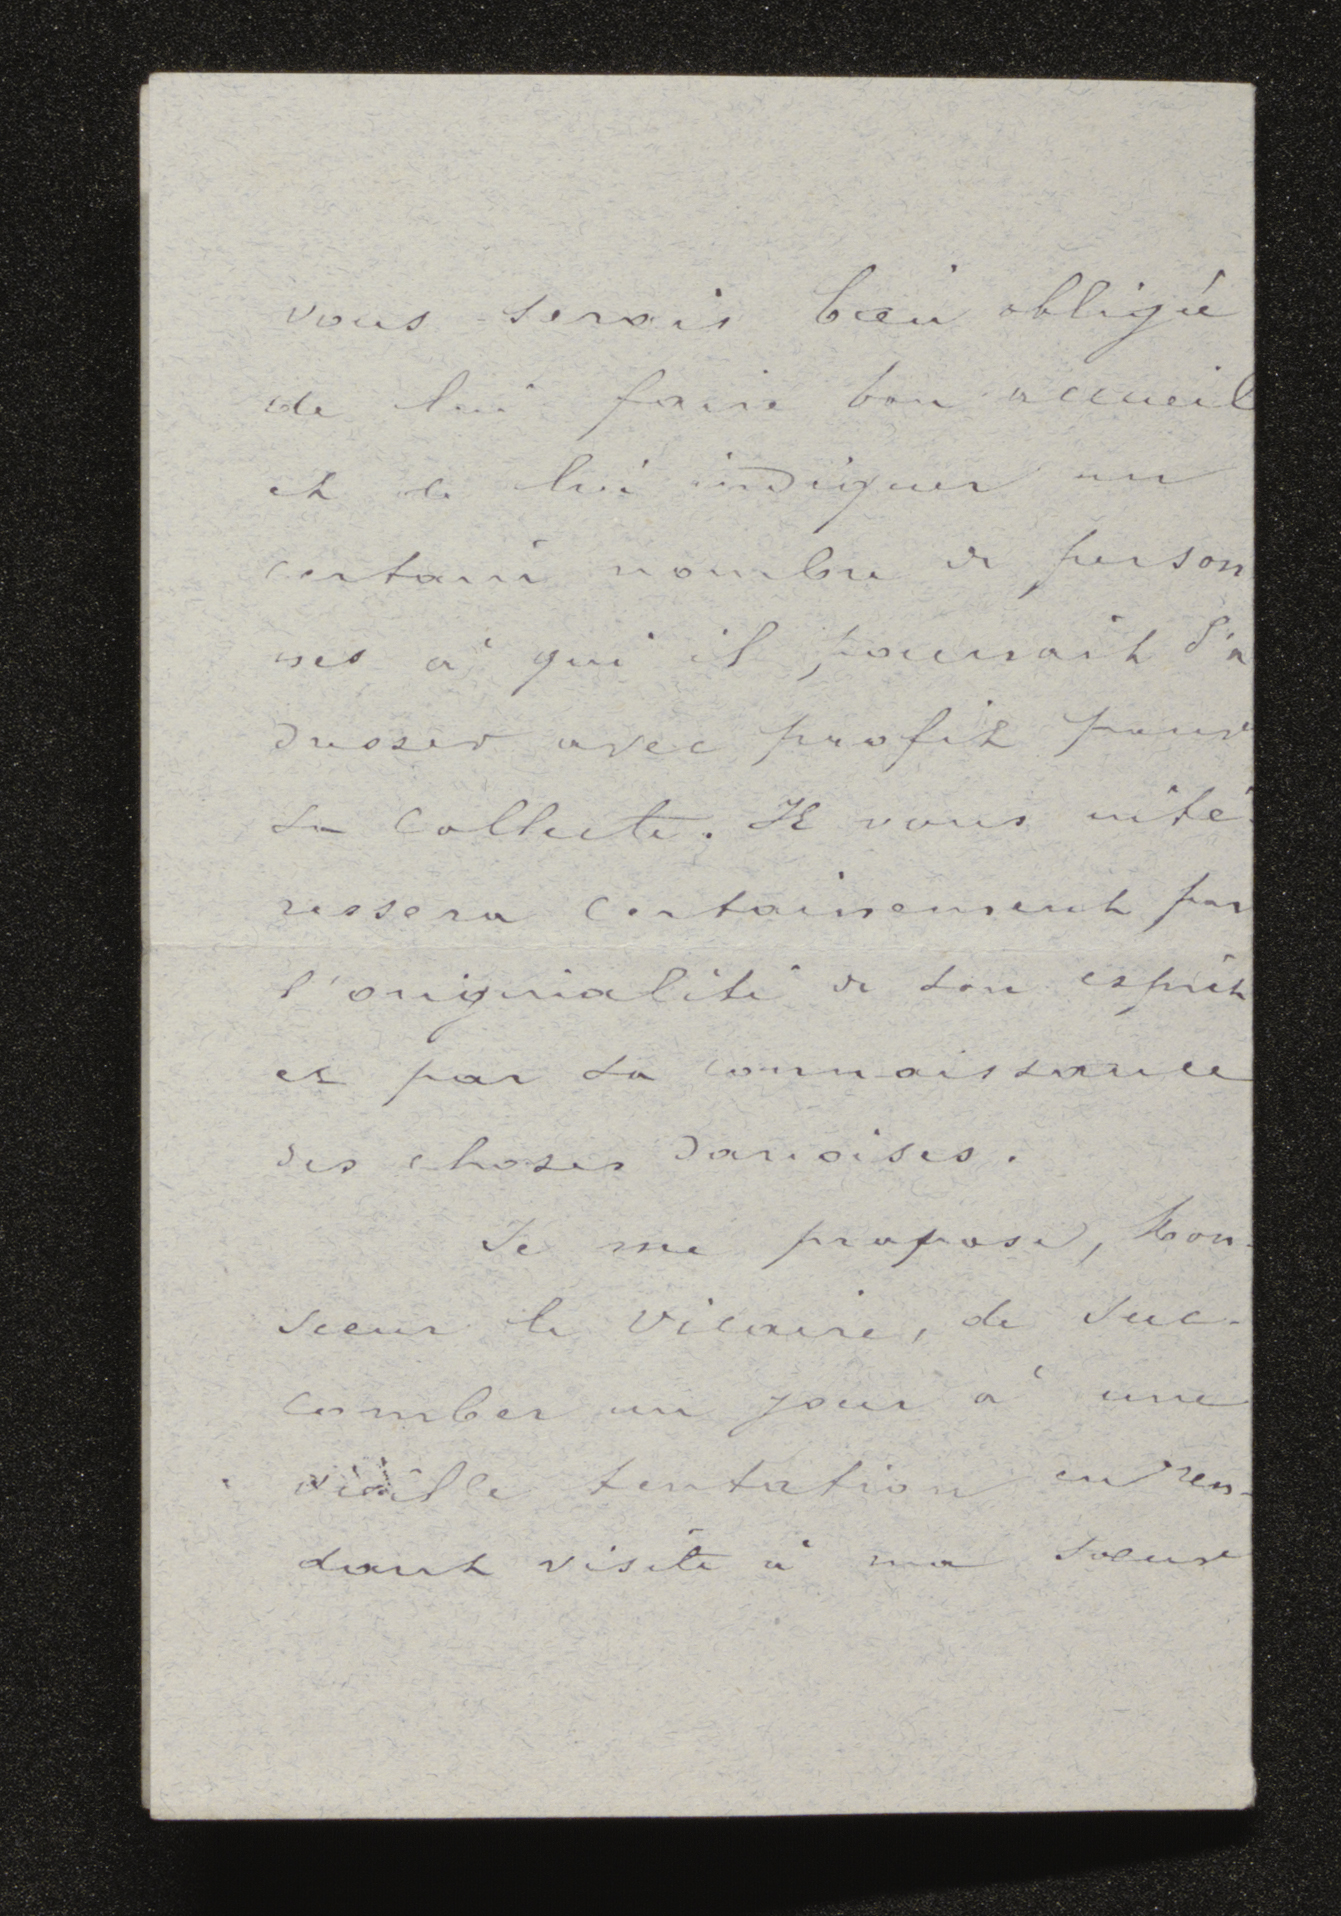 vous serais bien obligé
de lui faire bon accueil
et de lui indiquer un
certain nombre de person
nes à qui il pourrait s'a
dresser avec profit pour
sa collecte. Il vous inté-
ressera certainement par
l'originalité de son esprit
et par sa connaissance
des choses danoises.
Je me propose, Mon-
sieur le Vicaire, de suc-
comber un jour à une
vieille tentation en ren-
dant visite à ma soeur